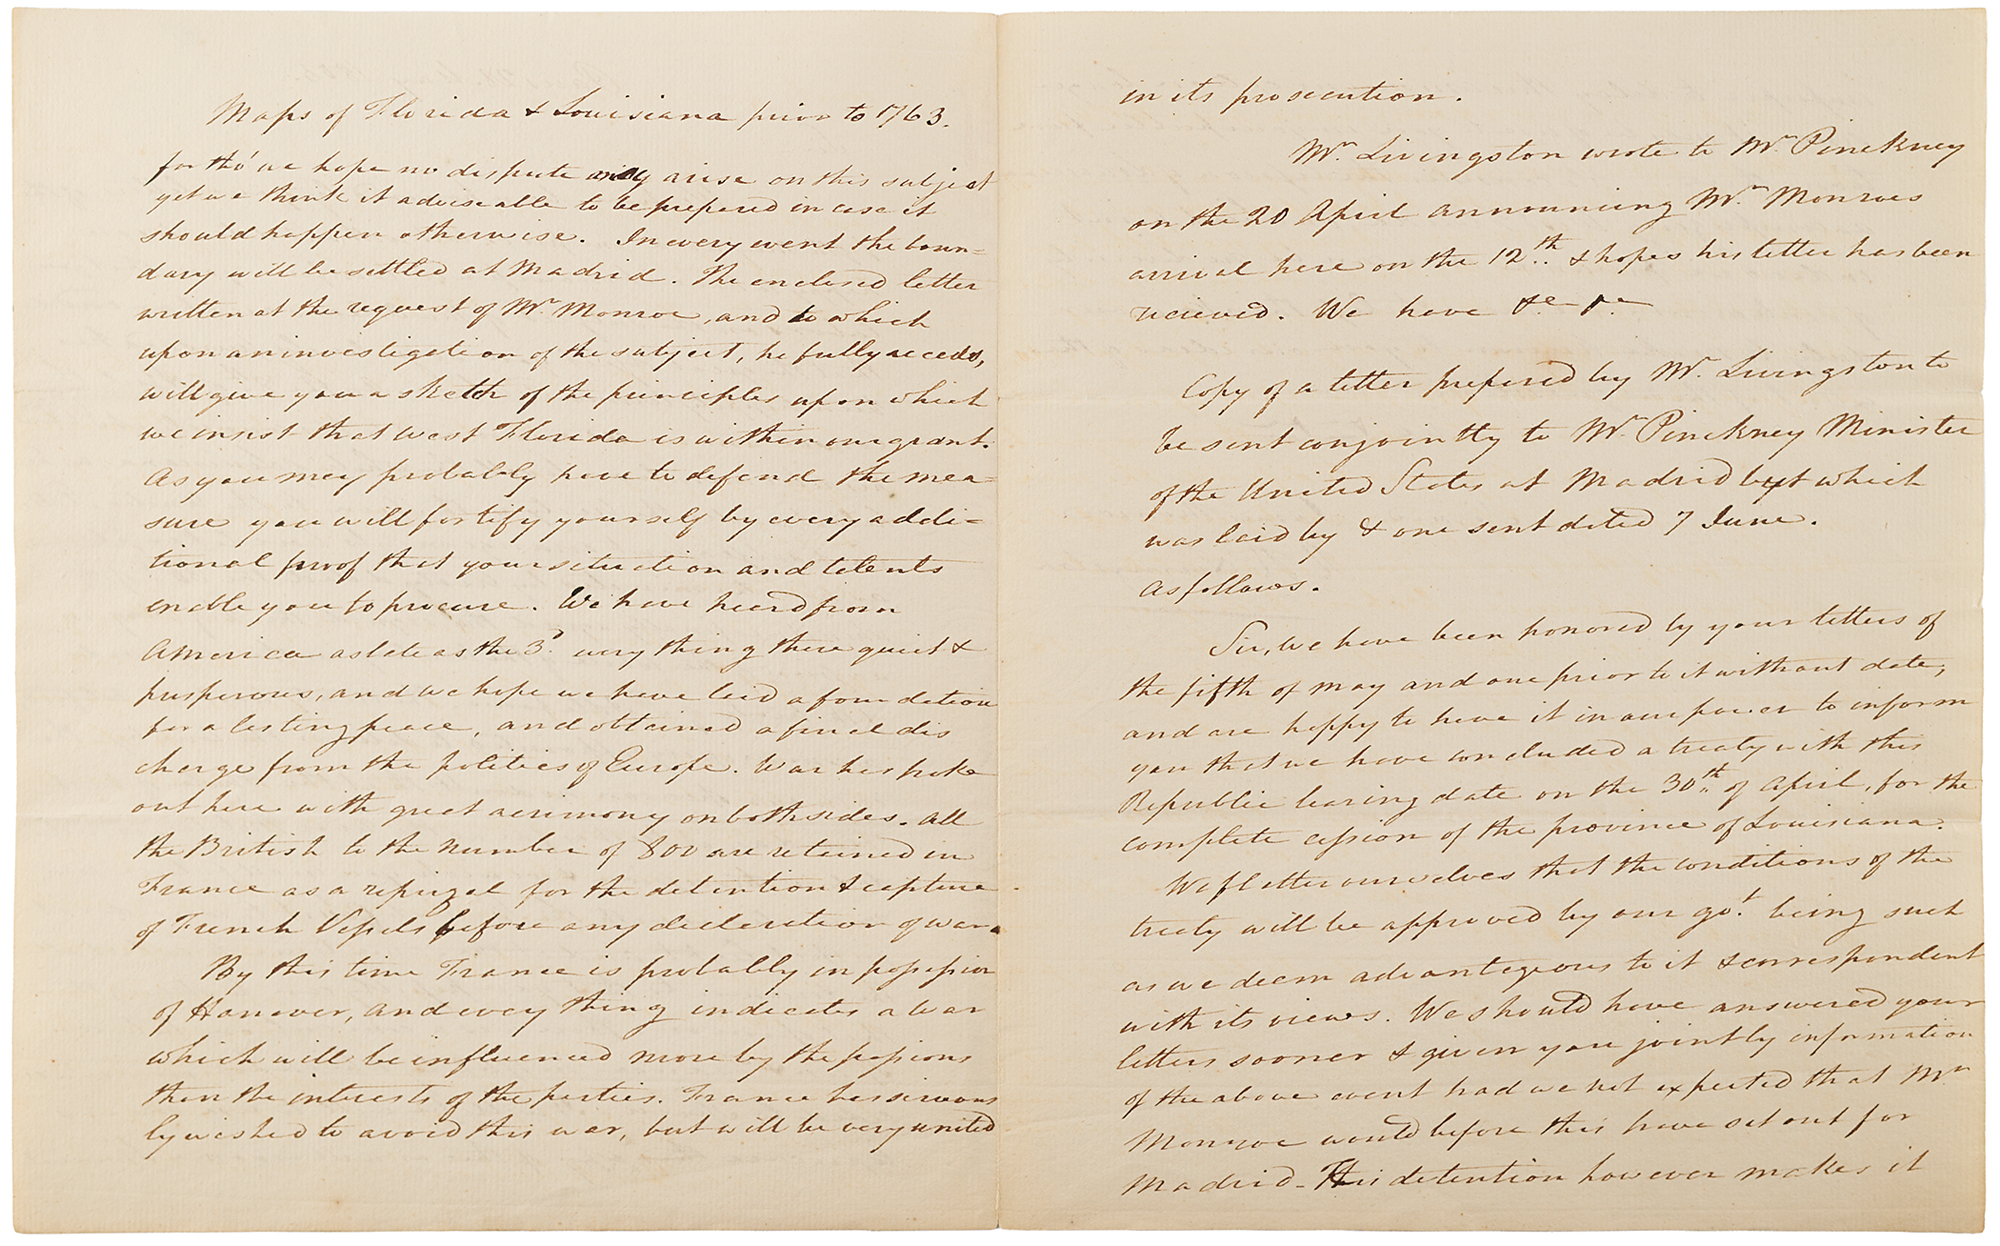 Maps of Florida & Louisiana prior to 1763.
for tho' we hope no dispute may arise on this subject
yet we think it adviseable to be prepared in case it
should happen otherwise. In every event the boun=
dary will be settled at Madrid. The enclosed letter
written at the request of Mr. Monroe, and to which
upon an investigation of the subject, he fully accedes,
will give you a sketch of the principles upon which
we insist that west Florida is within our grant.
As you may probably have to defend the mea=
sure you will fortify yourself by every addi=
tional proof that your situation and talents
enable you to procure. We have heard from
America as late as the 3d. every thing there quiet &
prosperous, and we hope we have laid a foundation
for a lasting peace, and obtained a final dis
charge from the politics of Europe. War has broke
out here with great acrimony on both sides. All
the British to the number of 800 are retained in
France as a reprizal for the detention & capture
of French Vessels before any declaration of war.
By this time France is probably in possession
of Hanover, and every thing indicates a war
which will be influenced more by the passions
than the interests of the parties. France has serious
ly wished to avoid this war, but will be very united
in its prosecution.
Mr. Livingston wrote to Mr. Pinckney
on the 20 April announcing Mr. Monroes
arrival here on the 12th. & hopes his letter has been
recieved. We have &c &c
Copy of a letter prepared by Mr. Livingston to
be sent conjointly to Mr. Pinckney Minister
of the United States at Madrid but which
was laid by & one sent dated 7 June.
As follows.
Sir, We have been honored by your letters of
the fifth of may and one prior to it without date,
and are happy to have it in our power to inform
you that we have concluded a treaty with this
Republic bearing date on the 30th. of April, for the
complete cession of the province of Louisiana.
We flatter ourselves that the conditions of the
treaty will be approved by our got. being such
as we deem advantageous to it & correspondent
with its views. We should have answered your
letters sooner & given you jointly information
of the above event had we not expected that Mr.
Monroe would before this have set out for
Madrid - This detention however makes it